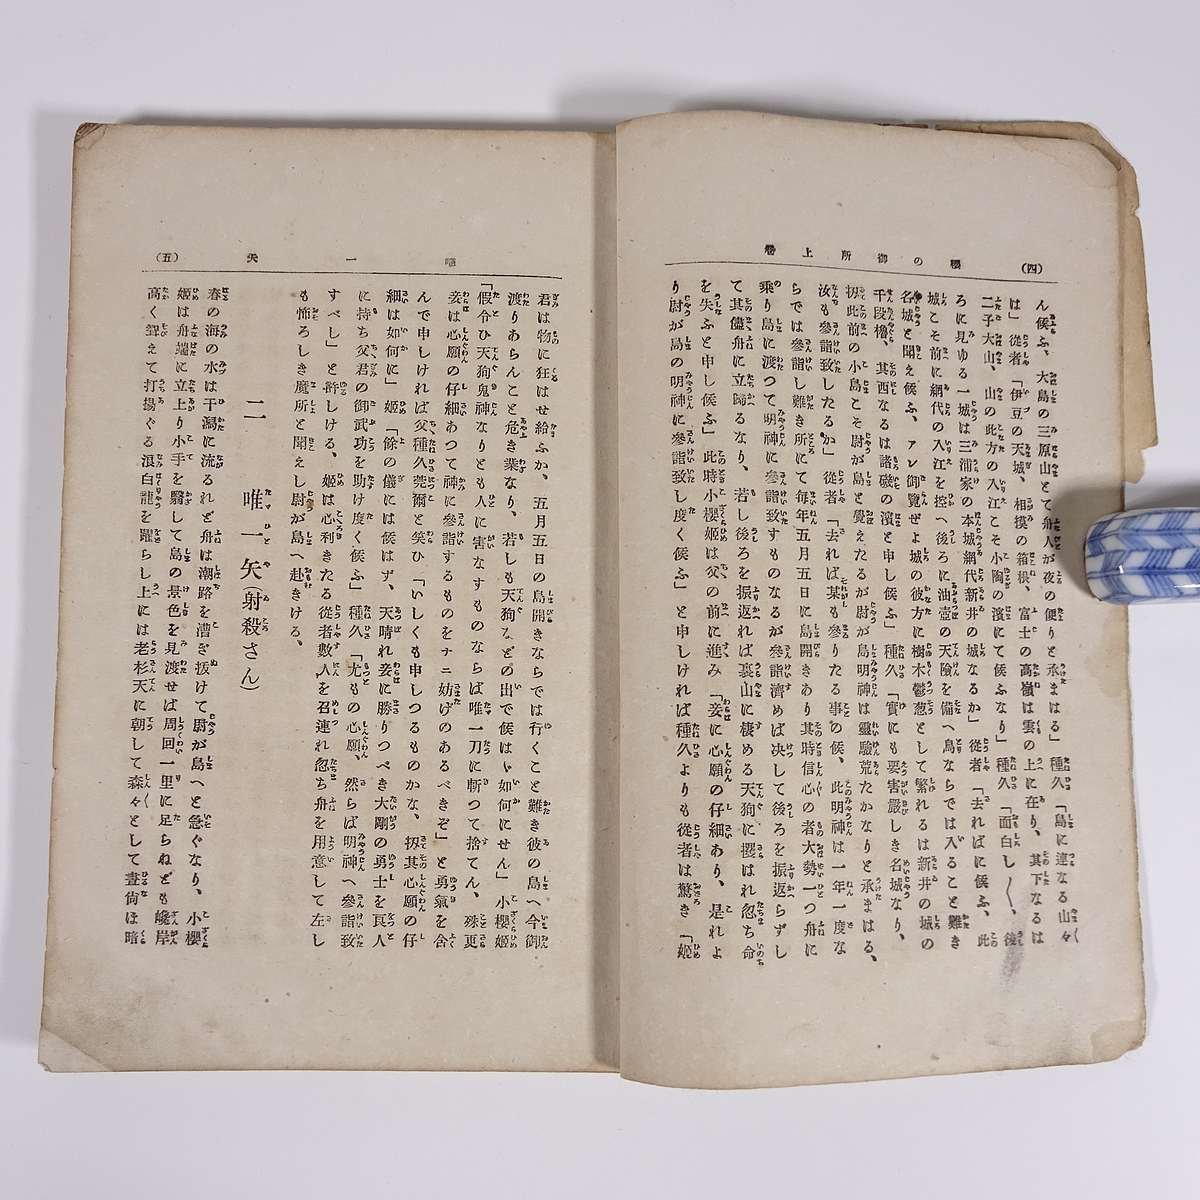 （四）　櫻の御所上卷
ん候ふ、大島の三原山とて舟人が夜の便りと承まはる」種久「島に連なる山々
は」從者「伊豆の天城、相摸の箱根、富士の高嶺は雲の上に在り、其下なるは
二子大山、山の此方の入江こそ小陶の濱にて候ふなり」種久「面白し〳〵、後
ろに見ゆる一城は三浦家の本城網代新井の城なるか」從者「去ればに候ふ、此
城こそ前に網代の入江を控へ後ろに油壺の天險を備へ鳥ならでは入ること難き
名城と聞え候ふ、アレ御覽ぜよ城の彼方に樹木鬱葱として繁れるは新井の城の
千段櫓、其西なるは諸磯の濱と申し候ふ」種久「實にも要害嚴しき名城なり、
扨此前の小島こそ尉が島と覺えたるが尉が島明神は靈驗荒たかなりと承まはる、
汝も參詣致したるか」從者「去れば某も參りたる事の候、此明神は一年一度な
らでは參詣し難き所にて每年五月五日に島開きあり其時信心の者大勢一つ舟に
乘り島に渡つて明神に參詣致すものなるが參詣濟めば決して後ろを振返らずし
て其儘舟に立歸るなり、若し後ろを振返れば裏山に棲める天狗に攫はれ忽ち命
を失ふと申し候ふ」此時小櫻姬は父の前に進み「妾に心願の仔細あり、是れよ
り尉が島の明神に參詣致し度く候ふ」と申しければ種久よりも從者は驚き「姬
唯一矢　（五）
君は物に狂はせ給ふか、五月五日の島開きならでは行くこと難き彼の島へ今御
渡りあらんこと危き業なり、若しも天狗などの出で候はゞ如何にせん」小櫻姬
「假令ひ天狗鬼神なりとも人に害なすものならば唯一刀に斬つて捨てん、殊更
妾は心願の仔細あつて神に參詣するものをナニ妨げのあるべきぞ」と勇氣を含
んで申しければ父種久莞爾と笑ひ「いしくも申しつるものかな、扨其心願の仔
細は如何に」姬「餘の儀には候はず、天晴れ妾に勝りつべき大剛の勇士を良人
に持ち父君の御武功を助け度く候ふ」種久「尤もの心願、然らば明神へ參詣致
すべし」と許しける、姬は心利きたる從者數人を召連れ忽ち舟を用意して左し
も怖ろしき魔所と聞えし尉が島へ赴きける、
二　唯一矢射殺さん）
春の海の水は干潟に流るれど舟は潮路を漕ぎ拔けて尉が島へと急ぐなり、小櫻
姬は舟端に立上り小手を翳して島の景色を見渡せば周回一里に足らねども巉岸
高く聳えて打揚ぐる浪白龍を躍らし上には老杉天に朝して森々として晝尙ほ暗